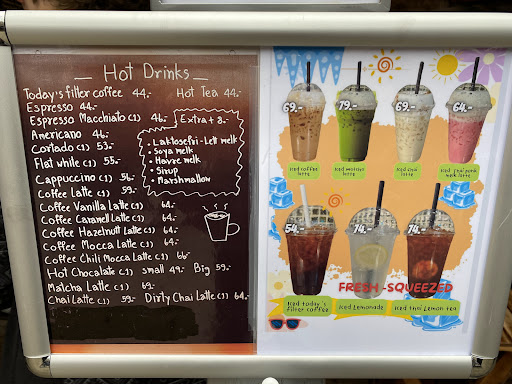 Hot Drinks
Today's filter coffee 44.- Hot Tea 44.-
Espresso 44.-
Espresso Macchiato (1) 46.-
Americano 46.-
Cortado (1) 53.-
Flat white (1) 55.-
Cappuccino (1) 56.-
Coffee Latte (1) 59.-
Coffee Vanilla Latte (1) 64.-
Coffee Caramell Latte (1) 64.-
Coffee Hazelnutt Latte (1) 64.-
Coffee Mocca Latte (1) 64.-
Coffee Chili Mocca Latte (1) 66.-
Hot Chocalate (1) small 49.- Big 59.-
Matcha Latte (1) 69.-
Chai Latte (1) 59.- Dirty Chai Latte (1) 64.-
Extra + 8.-
• Laktosefri-Lett melk
• Soya melk
• Havre melk
• Sirup
• Marshmallow
69.-
79.-
69.-
64.-
Iced coffee latte
Iced matcha latte
Iced chai latte
Iced Thai pink milk latte
54.-
74.-
74.-
FRESH-SQUEEZED
Iced today's filter coffee
Iced Lemonade
Iced thai Lemon tea